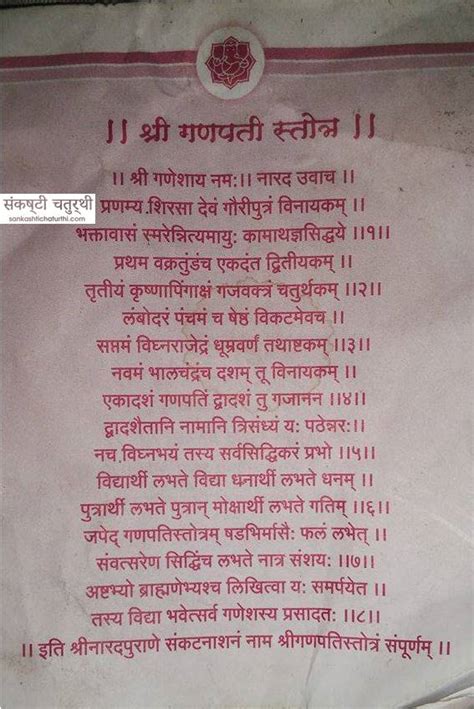 ।। श्री गणपती स्तोत्र ।।
।। श्री गणेशाय नमः।। नारद उवाच ।।
संकष्टी चतुर्थी
sankashtichaturthi.com
प्रणम्य शिरसा देवं गौरीपुत्रं विनायकम् ।।
भक्तावासं स्मरेन्नित्यमायुः कामाथज्ञसिद्धये ।।१।।
प्रथम वक्रतुडंच एकदंत द्वितीयकम् ।।
तृतीयं कृष्णापिंगाक्षं गजवक्त्रं चतुर्थकम् ।।२।।
लंबोदरं पंचमं च षेष्ठं विकटमेवच ।।
सप्तमं विघ्नराजेद्रं धूम्रवर्णं तथाष्टकम् ।।३।।
नवमं भालचंद्रंच दशम् तू विनायकम् ।।
एकादशं गणपतिं द्वादशं तु गजानन ।।४।।
द्वादशैतानि नामानि त्रिसंध्यं यः पठेन्नरः।।
नच विघ्नभयं तस्य सर्वसिद्धिकरं प्रभो ।।५।।
विद्यार्थी लभते विद्या धनार्थी लभते धनम् ।।
पुत्रार्थी लभते पुत्रान् मोक्षार्थी लभते गतिम् ।।६।।
जपेद् गणपतिस्तोत्रम् षडभिर्मासैः फलं लभेत् ।।
संवत्सरेण सिद्धिंच लभते नात्र संशयः ।।७।।
अष्टभ्यो ब्राह्मणेभ्यश्च लिखित्वा यः समर्पयेत ।।
तस्य विद्या भवेत्सर्व गणेशस्य प्रसादतः ।।८।।
।। इति श्रीनारदपुराणे संकटनाशनं नाम श्रीगणपतिस्तोत्रं संपूर्णम् ।।